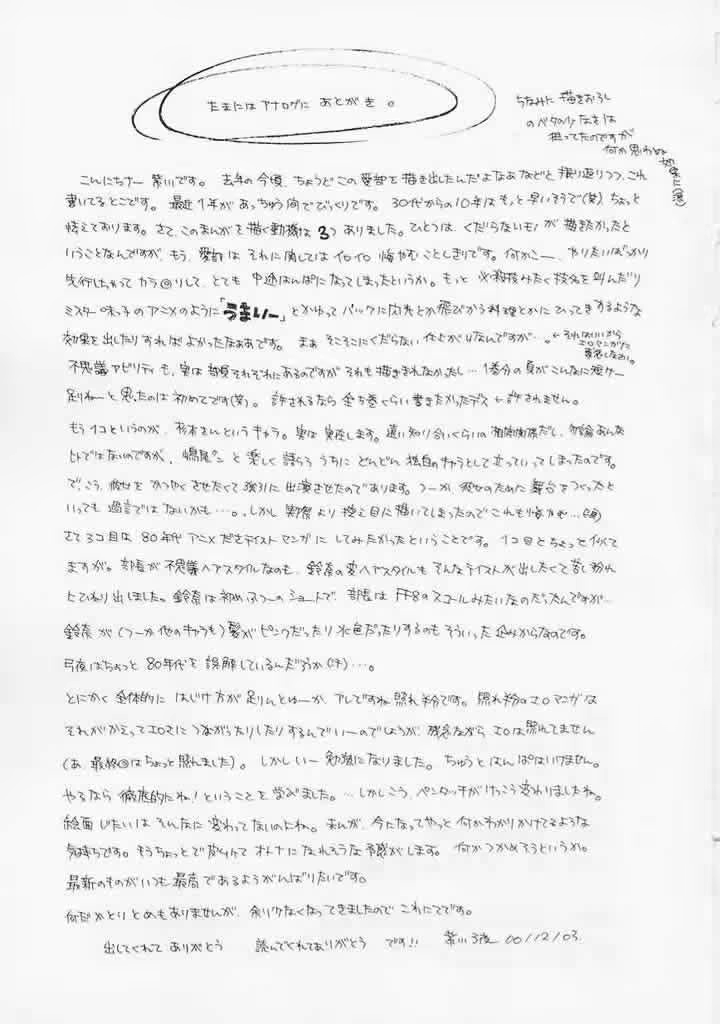 たまにはアナログに あとがき。
ちなみに 描きおろし
のベタの少なさは
狙ってたのですが
何か思わぬ
こんにちわー 紫川です。 去年の今頃、ちょうどこの愛鈴を描き出したんだよなあなどと振り返りつつ、これ
書いてるとこです。 最近1年があっちゅう間でびっくりです。 30代からの10年はもっと早いそうで(笑) ちょっと
怯えております。 さて、このまんがを描く動機は 3つ ありました。ひとつは、くだらないモノが 描きたかったと
いうことなんですが、もう、愛鈴は それに関しては イロイロ 悔やむことしきりです。何かこー、やりたいばっかり
先行しちゃって カラ回りして、とても 中途はんぱになってしまったというか。もっと 必殺技みたく技名を叫んだり
ミスター味っ子のアニメのように「うまいー」とかゆって バックに閃光とか飛びかう料理とかに ひってきするような
効果を出したりすればよかったなぁあです。 まぁ そこそこにくだらない 仕上がりなんですが…。←それはいいから
エロマンガに
専念しなさい。
不思議アビリティも、実は 部員それぞれにあるのですが それも描ききれなかったし… 1巻分の頁がこんなに短けー
足りねーと思ったのは初めてです(笑)。 許されるなら 全5巻くらい書きたかったデス ← 許されません。
もう1コというのが、杉本さんというキャラ。実は 実在します。遠い知り合いくらいの 関係だし、勿論あんな
ヒトではないのですが、 鳴尾ピン と楽しく語らううちに どんどん 独自のキャラとして立っていってしまったのです。
で、こう、彼女を かつやく させたくて 強引に 出演させたのであります。つーか 彼女のために 舞台をつくったと
いっても 過言ではないかも…。しかし 実際より 控え目に描いてしまったので これも
さて3コ目は 80年代 アニメ だきテイスト マンガ に してみたかったということです。 1コ目とちょっと似て
ますが。部長が 不思議ヘアスタイルなのも、鈴奈の変ヘアスタイルも そんなテイストが出したくて 苦し紛れ
にひねり出しました。鈴奈は初めふつーのショートで、部長は FF8のスコールみたいなのだったんですが…
鈴奈が(つーか他のキャラも) 髪が ピンクだったり 水色だったりするのも そういった 企みからなのです。
弓夜はちょっと 80年代を 誤解しているんだろうか(汗)…。
とにかく 全体的に はじけ方が 足りんとゆーか、アレですね 照れ半分です。 照れ半分のエロマンガは
それがかえってエロさに つながったりしたりするんでいーのでしょうが、残念ながら エロは照れてません
(あ、最終回はちょっと照れました)。 しかし いー 勉強になりました。 ちゅうとはんぱはいけません。
やるなら 徹底的にね! ということを 学びました。 …しかしこう、ペンタッチがけっこう変わりましたね。
絵面じたいは そんなに 変わってないのよね。まんが、今になって やっと 何かわかりかけてるような
気持ちです。もうちょっとで 抜けて オトナに なれそうな 予感がします。 何かつかめそうというか。
最新のものが いつも 最高 であるよう がんばりたいです。
何だかとりとめもありませんが、余りなくなってきましたので これにてです。
出してくれて ありがとう 読んでくれてありがとう です!! 紫川弓夜 00/12/03.